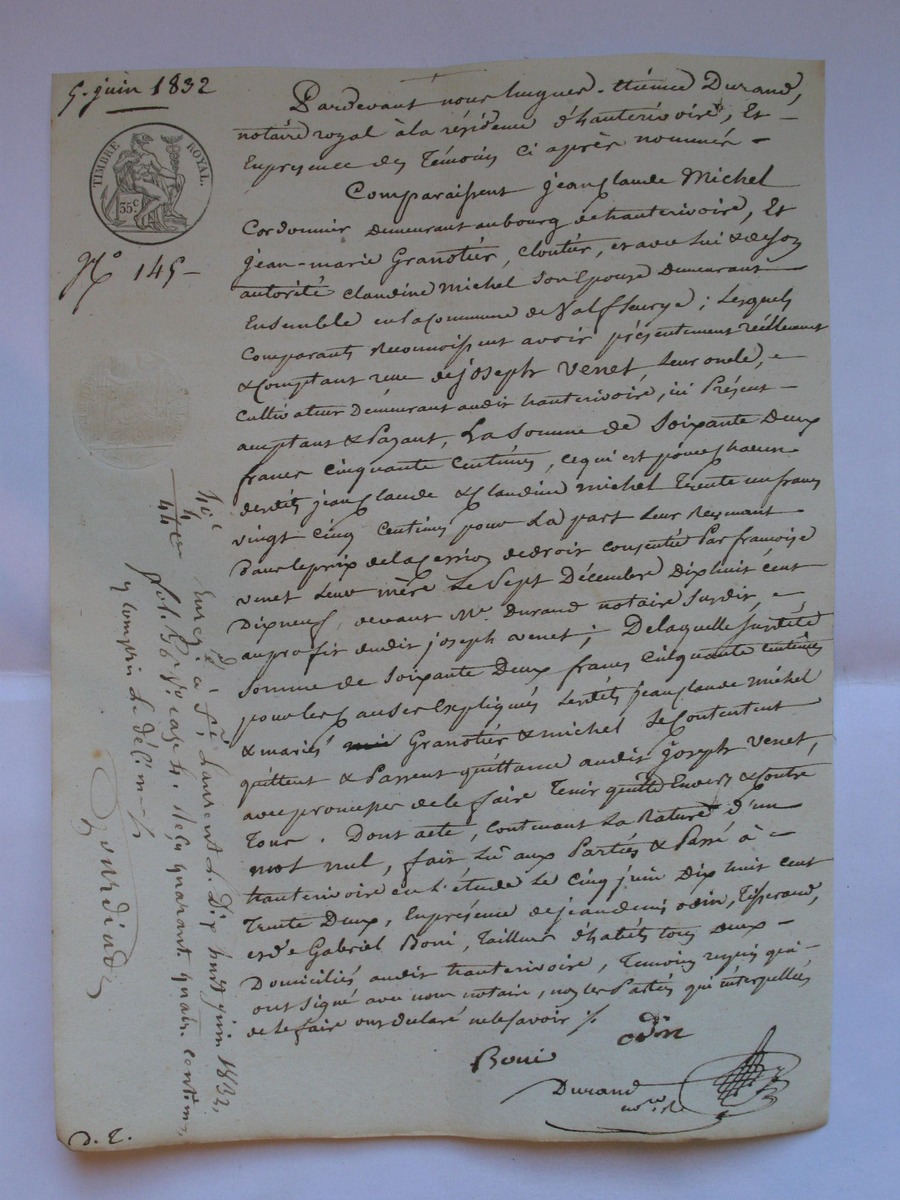 5. juin 1832
TIMBRE ROYAL.
35 c.
N° 145 -
Pardevant nous hugues-étiénne Durand,
notaire royal à la résidence d'hauterivoire, Et -
En présence des Témoins ci après nommés -
Comparaissent jean Claude Michel
Cordonnier Demeurant au bourg de hauterivoire, Et
jean-marie Granotier, Cloutier, et avec lui & de son
autorité claudine Michel son Epouse Demeurant
Ensemble en la Commune de Valfleurye ; Lesquels
Comparants Reconnoissent avoir présentement réellement
& Comptant reçu de joseph Venet Leur oncle,
Cultivateur Demeurant audit hauterivoire, ici Présent -
acceptant & Payant, La Somme de Soixante Deux
francs Cinquante Centimes, ce qui est pour chacun
desdits jean Claude & Claudine michel Trente un francs
vingt Cinq Centimes pour La part Leur Revenant
Dans le prix de la cession de droit consentie Par françoise
venet Leur mère Le Sept Décembre Dix huit cent
Dix neuf, devant Me. Durand notaire susdit,
au profit dudit joseph venet ; De laquelle susdite
somme de Soixante Deux francs Cinquante Centimes
pour les Causes Expliquées Lesdits jean Claude michel
& mariés Granotier & michel Se Contentent
quittent & Passent quittance audit joseph Venet,
avec promesses de le faire Tenir quitte Envers & Contre
Tous. Dont acte, Contenant La Rature d'un
mot nul, fait Lu aux Parties & Passé à
hauterivoire en L'étude Le cinq juin Dix huit cent
Trente Deux, En présence de jean denis odin, Tisserand,
et de Gabriel Boni, Tailleur d'habits tous Deux -
Domiciliés audit hauterivoire, Temoins requis qui -
ont Signé avec nous notaire, non les Parties qui interpellés
de le faire ont déclaré ne le savoir ./.
Boni odin
Durand
40 c
4
44 c
Enregé. à St. Laurent le Dix huit juin 1832,
fol. 56 Vo. case 4. Reçu quarante quatre centimes,
y compris le décime
D. E.